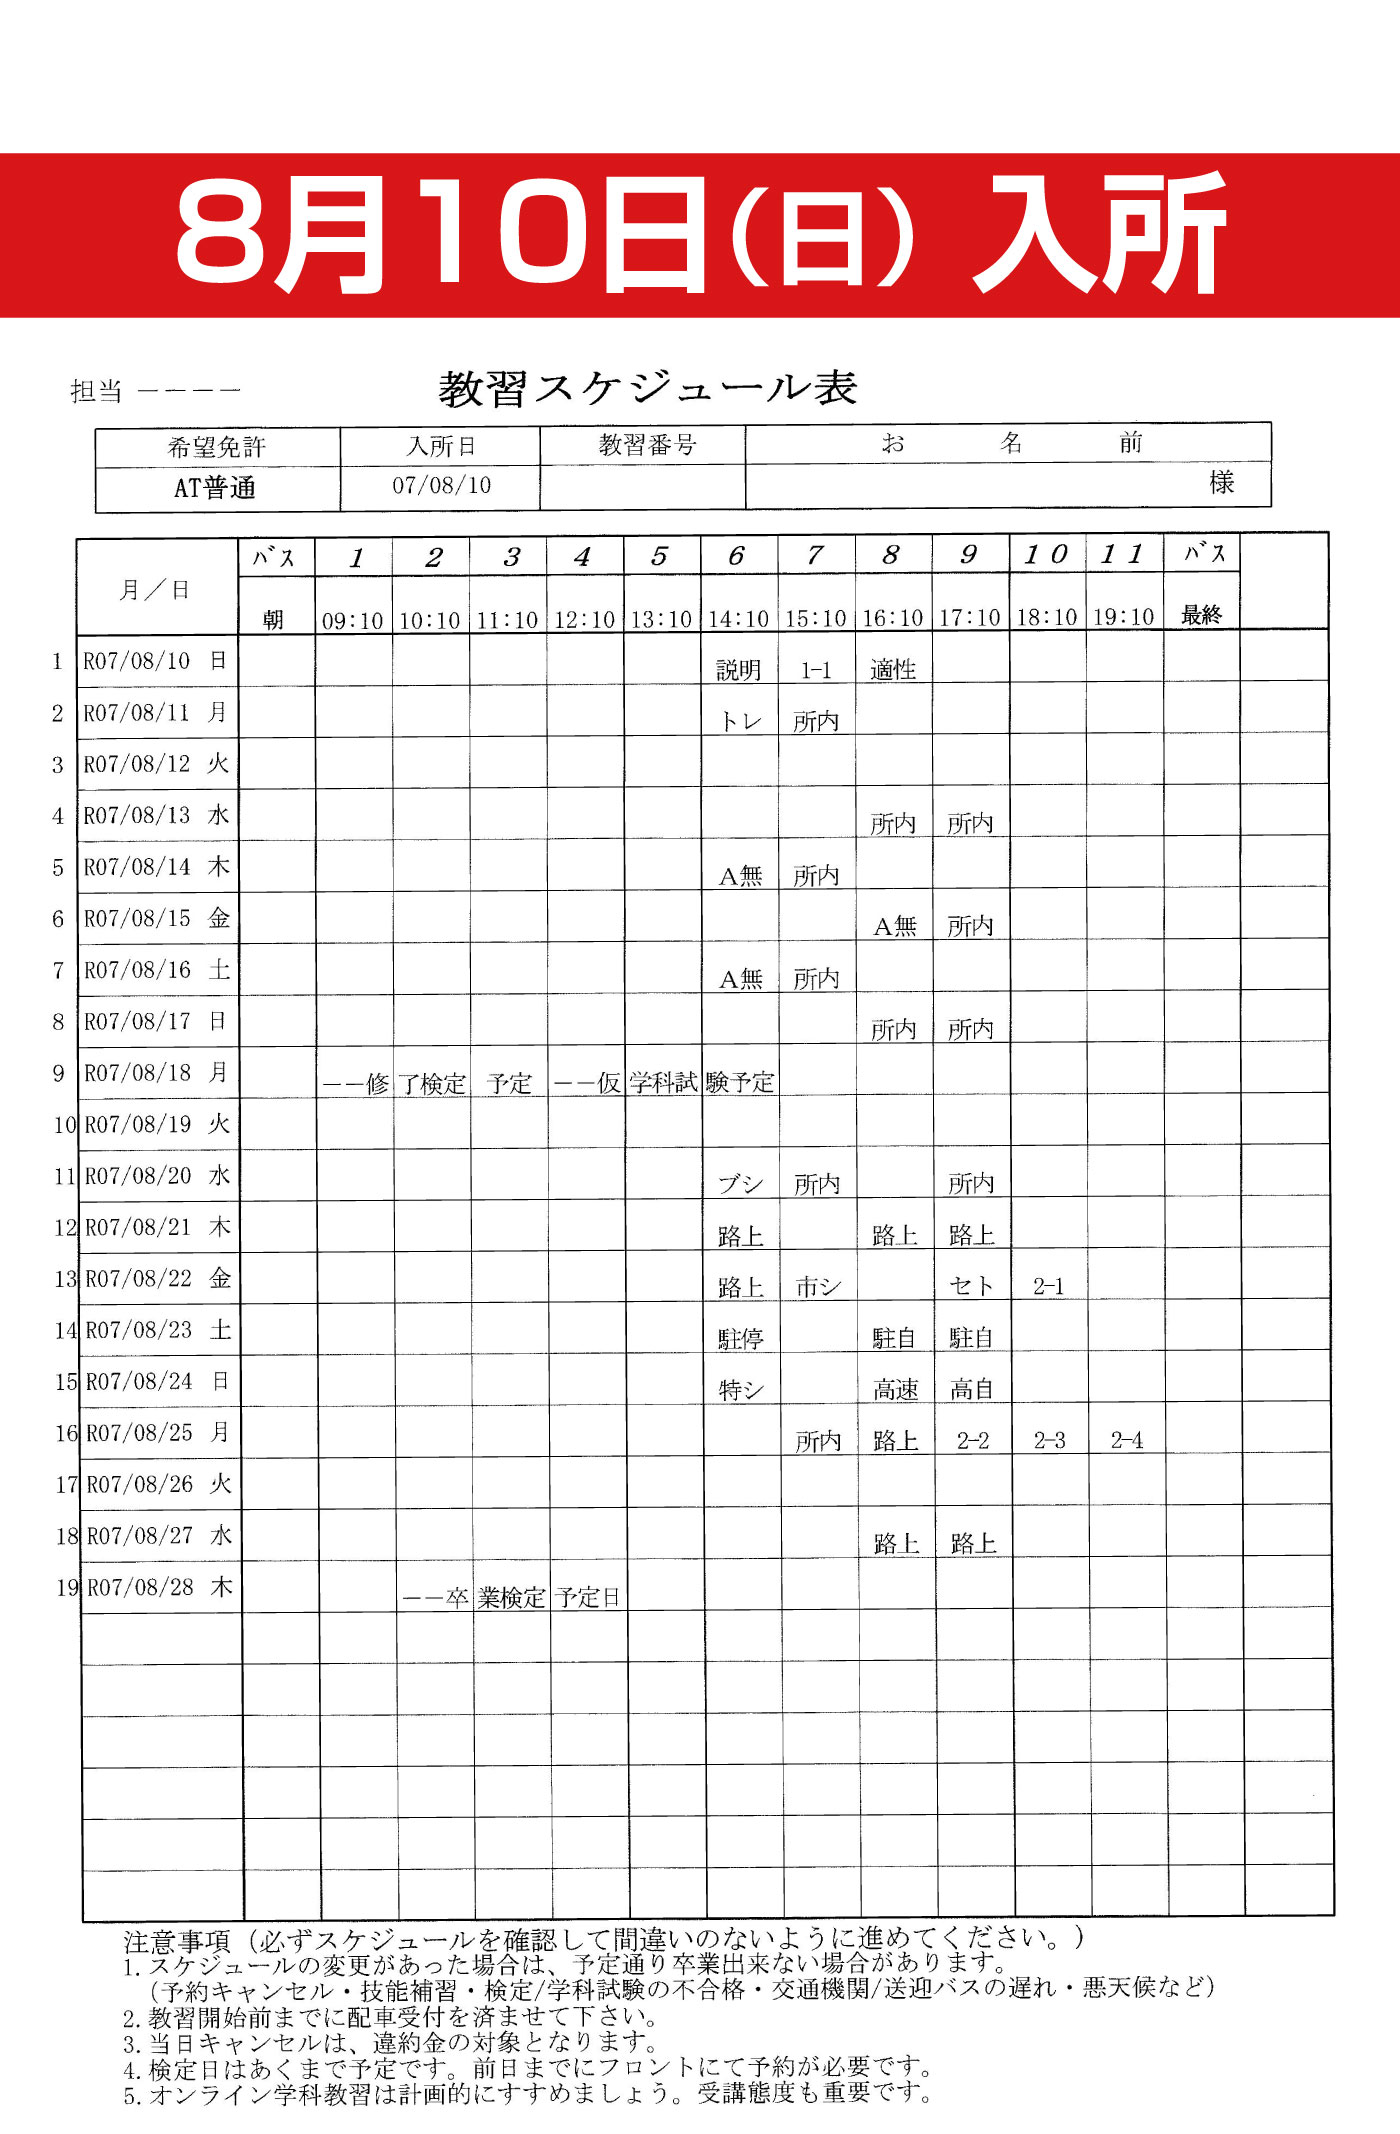 8月10日(日) 入所
担当 ーーーー 教習スケジュール表
希望免許 入所日 教習番号 お 名 前
AT普通 07/08/10 様
月／日 バス 1 2 3 4 5 6 7 8 9 10 11 バス
朝 09:10 10:10 11:10 12:10 13:10 14:10 15:10 16:10 17:10 18:10 19:10 最終
1 R07/08/10 日 説明 1-1 適性
2 R07/08/11 月 トレ 所内
3 R07/08/12 火
4 R07/08/13 水 所内 所内
5 R07/08/14 木 A無 所内
6 R07/08/15 金 A無 所内
7 R07/08/16 土 A無 所内
8 R07/08/17 日 所内 所内
9 R07/08/18 月 ーー修 了検定 予定 ーー仮 学科試 験予定
10 R07/08/19 火
11 R07/08/20 水 ブシ 所内 所内
12 R07/08/21 木 路上 路上 路上
13 R07/08/22 金 路上 市シ セト 2-1
14 R07/08/23 土 駐停 駐自 駐自
15 R07/08/24 日 特シ 高速 高自
16 R07/08/25 月 所内 路上 2-2 2-3 2-4
17 R07/08/26 火
18 R07/08/27 水 路上 路上
19 R07/08/28 木 ーー卒 業検定 予定日
注意事項（必ずスケジュールを確認して間違いのないように進めてください。）
1.スケジュールの変更があった場合は、予定通り卒業出来ない場合があります。
（予約キャンセル・技能補習・検定/学科試験の不合格・交通機関/送迎バスの遅れ・悪天候など）
2.教習開始前までに配車受付を済ませて下さい。
3.当日キャンセルは、違約金の対象となります。
4.検定日はあくまで予定です。前日までにフロントにて予約が必要です。
5.オンライン学科教習は計画的にすすめましょう。受講態度も重要です。